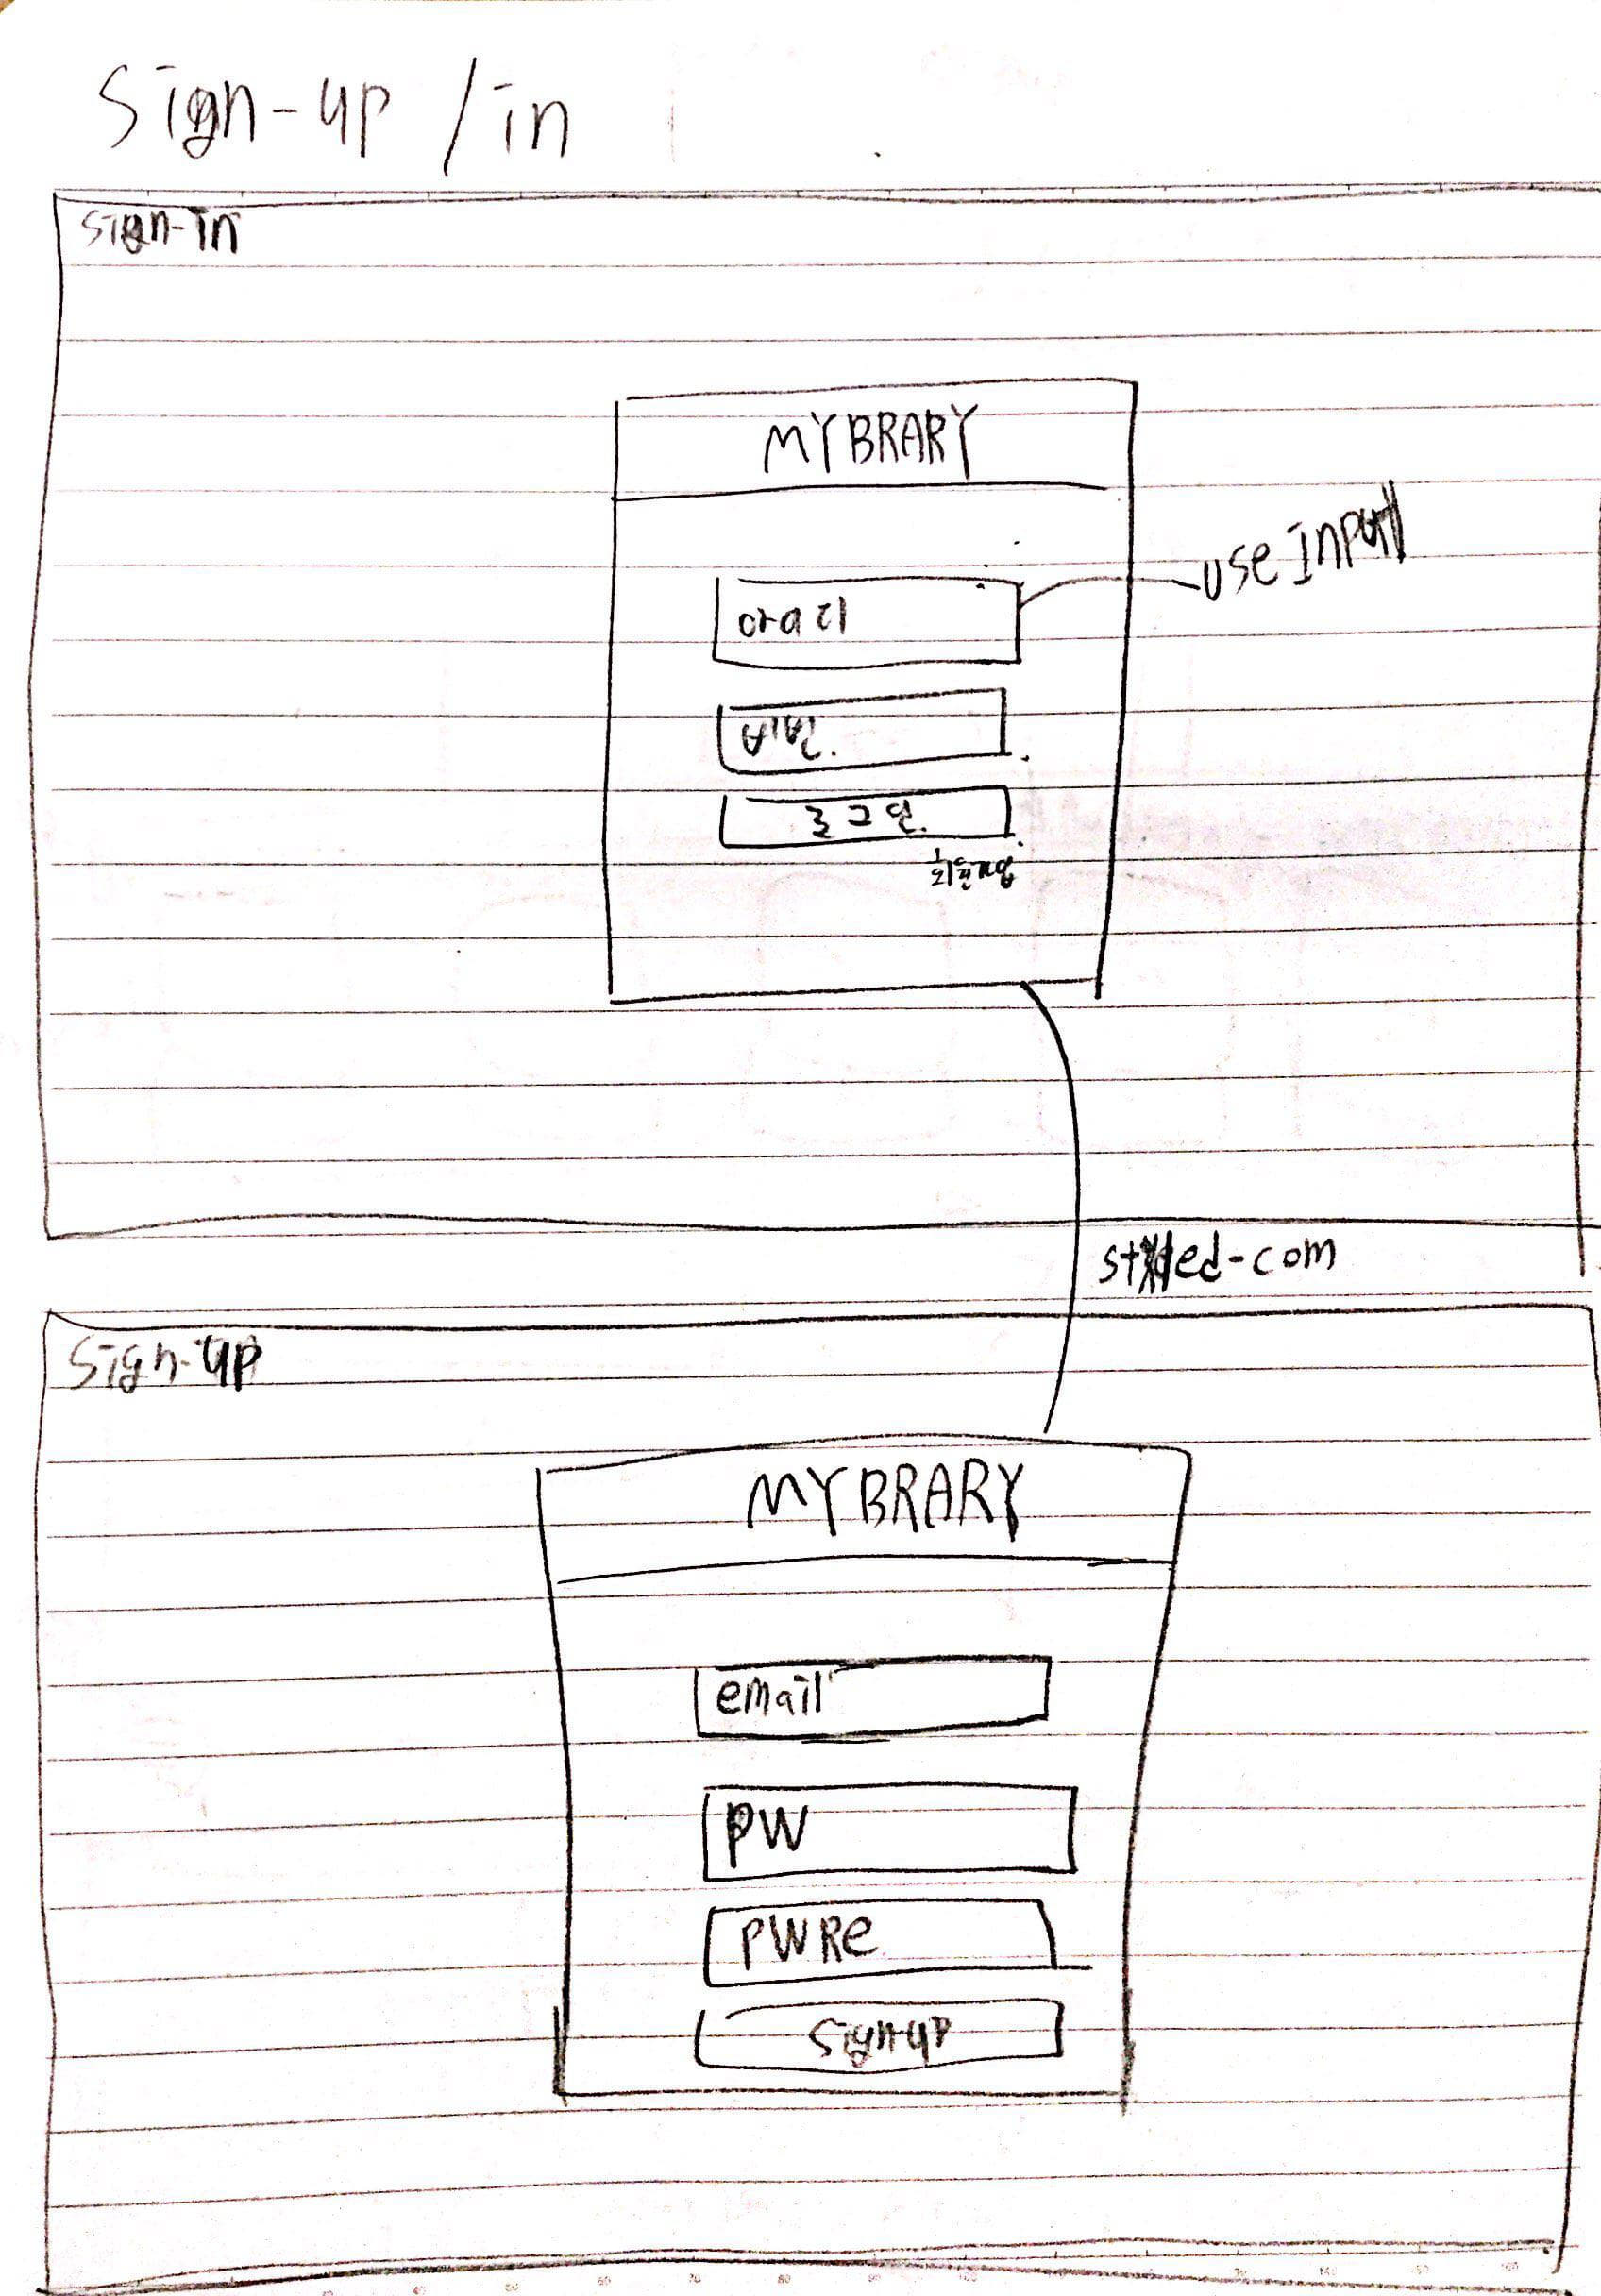 sign-up / in
sign-in
MYBRARY
use Input
아이디
비번.
로그인.
회원가입
styled-com
sign-up
MYBRARY
email
PW
PWRe
sign-up